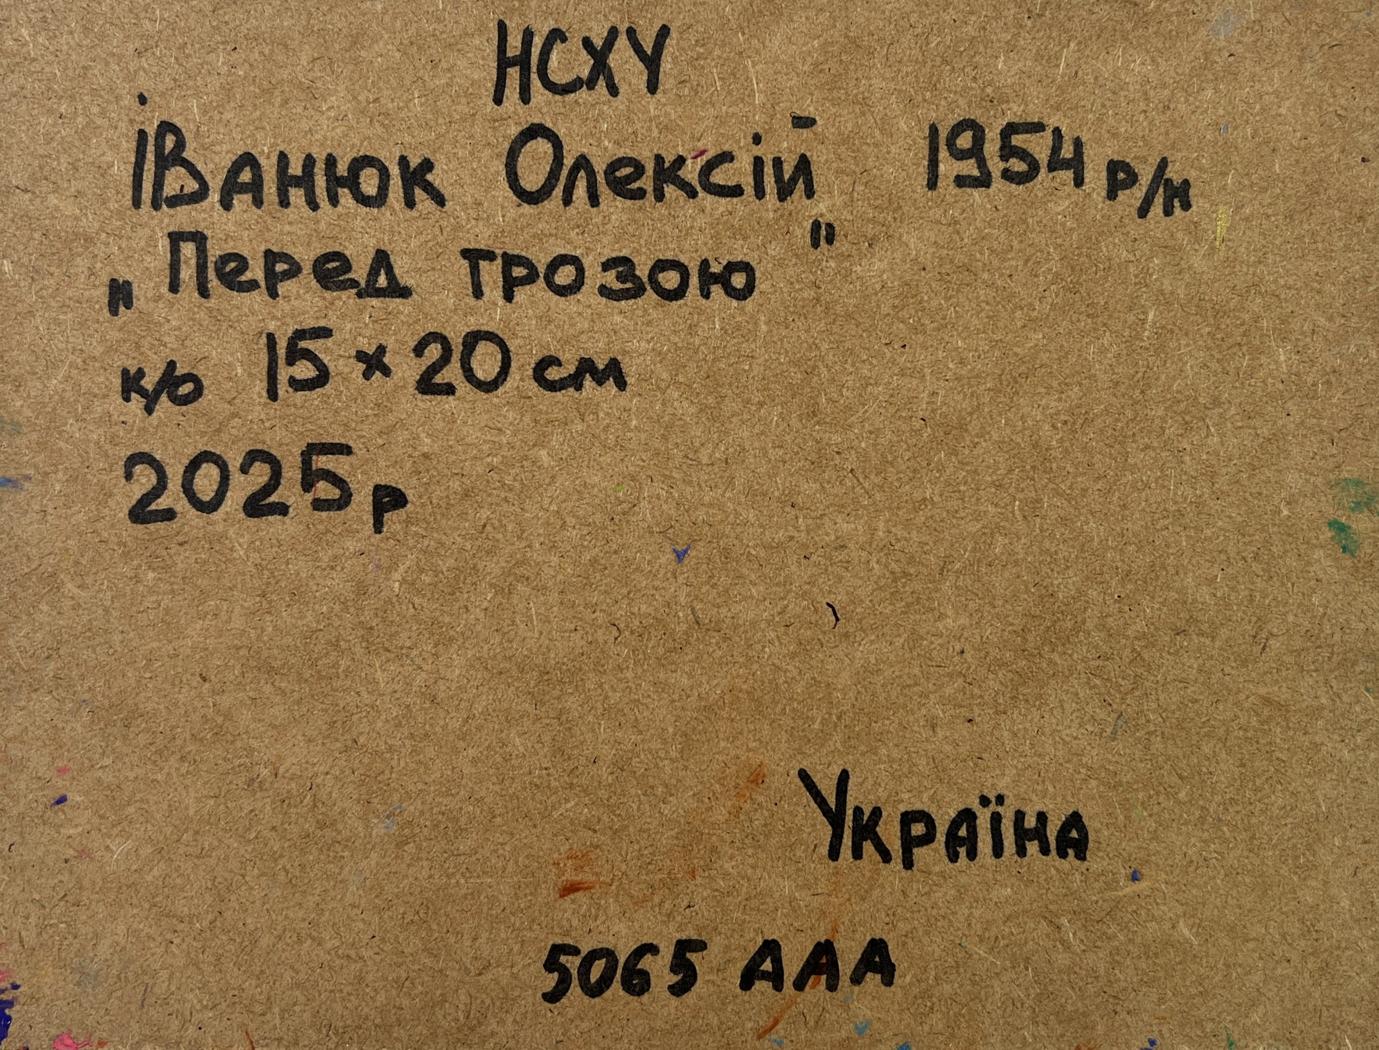 НСХУ
Іванюк Олексій 1954 р/н
„Перед грозою"
к/о 15 × 20 см
2025 р
Україна
5065 ААА